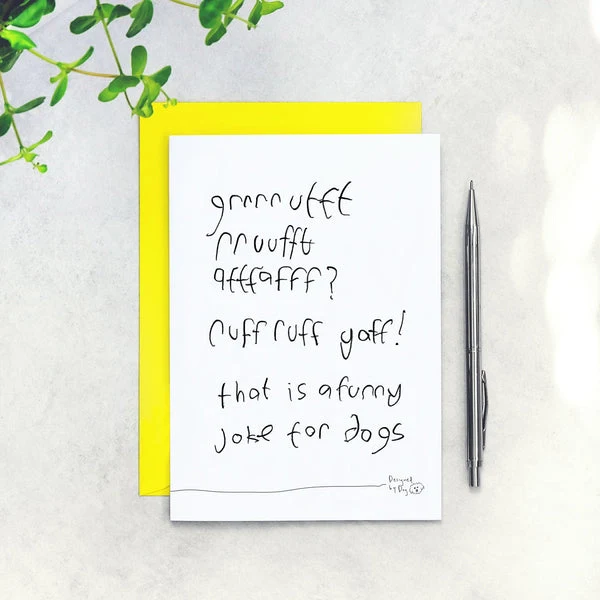 grrrr uffft
rruufft
afffafff?
ruff ruff yaff!
that is a funny
joke for dogs
Designed
by Dog